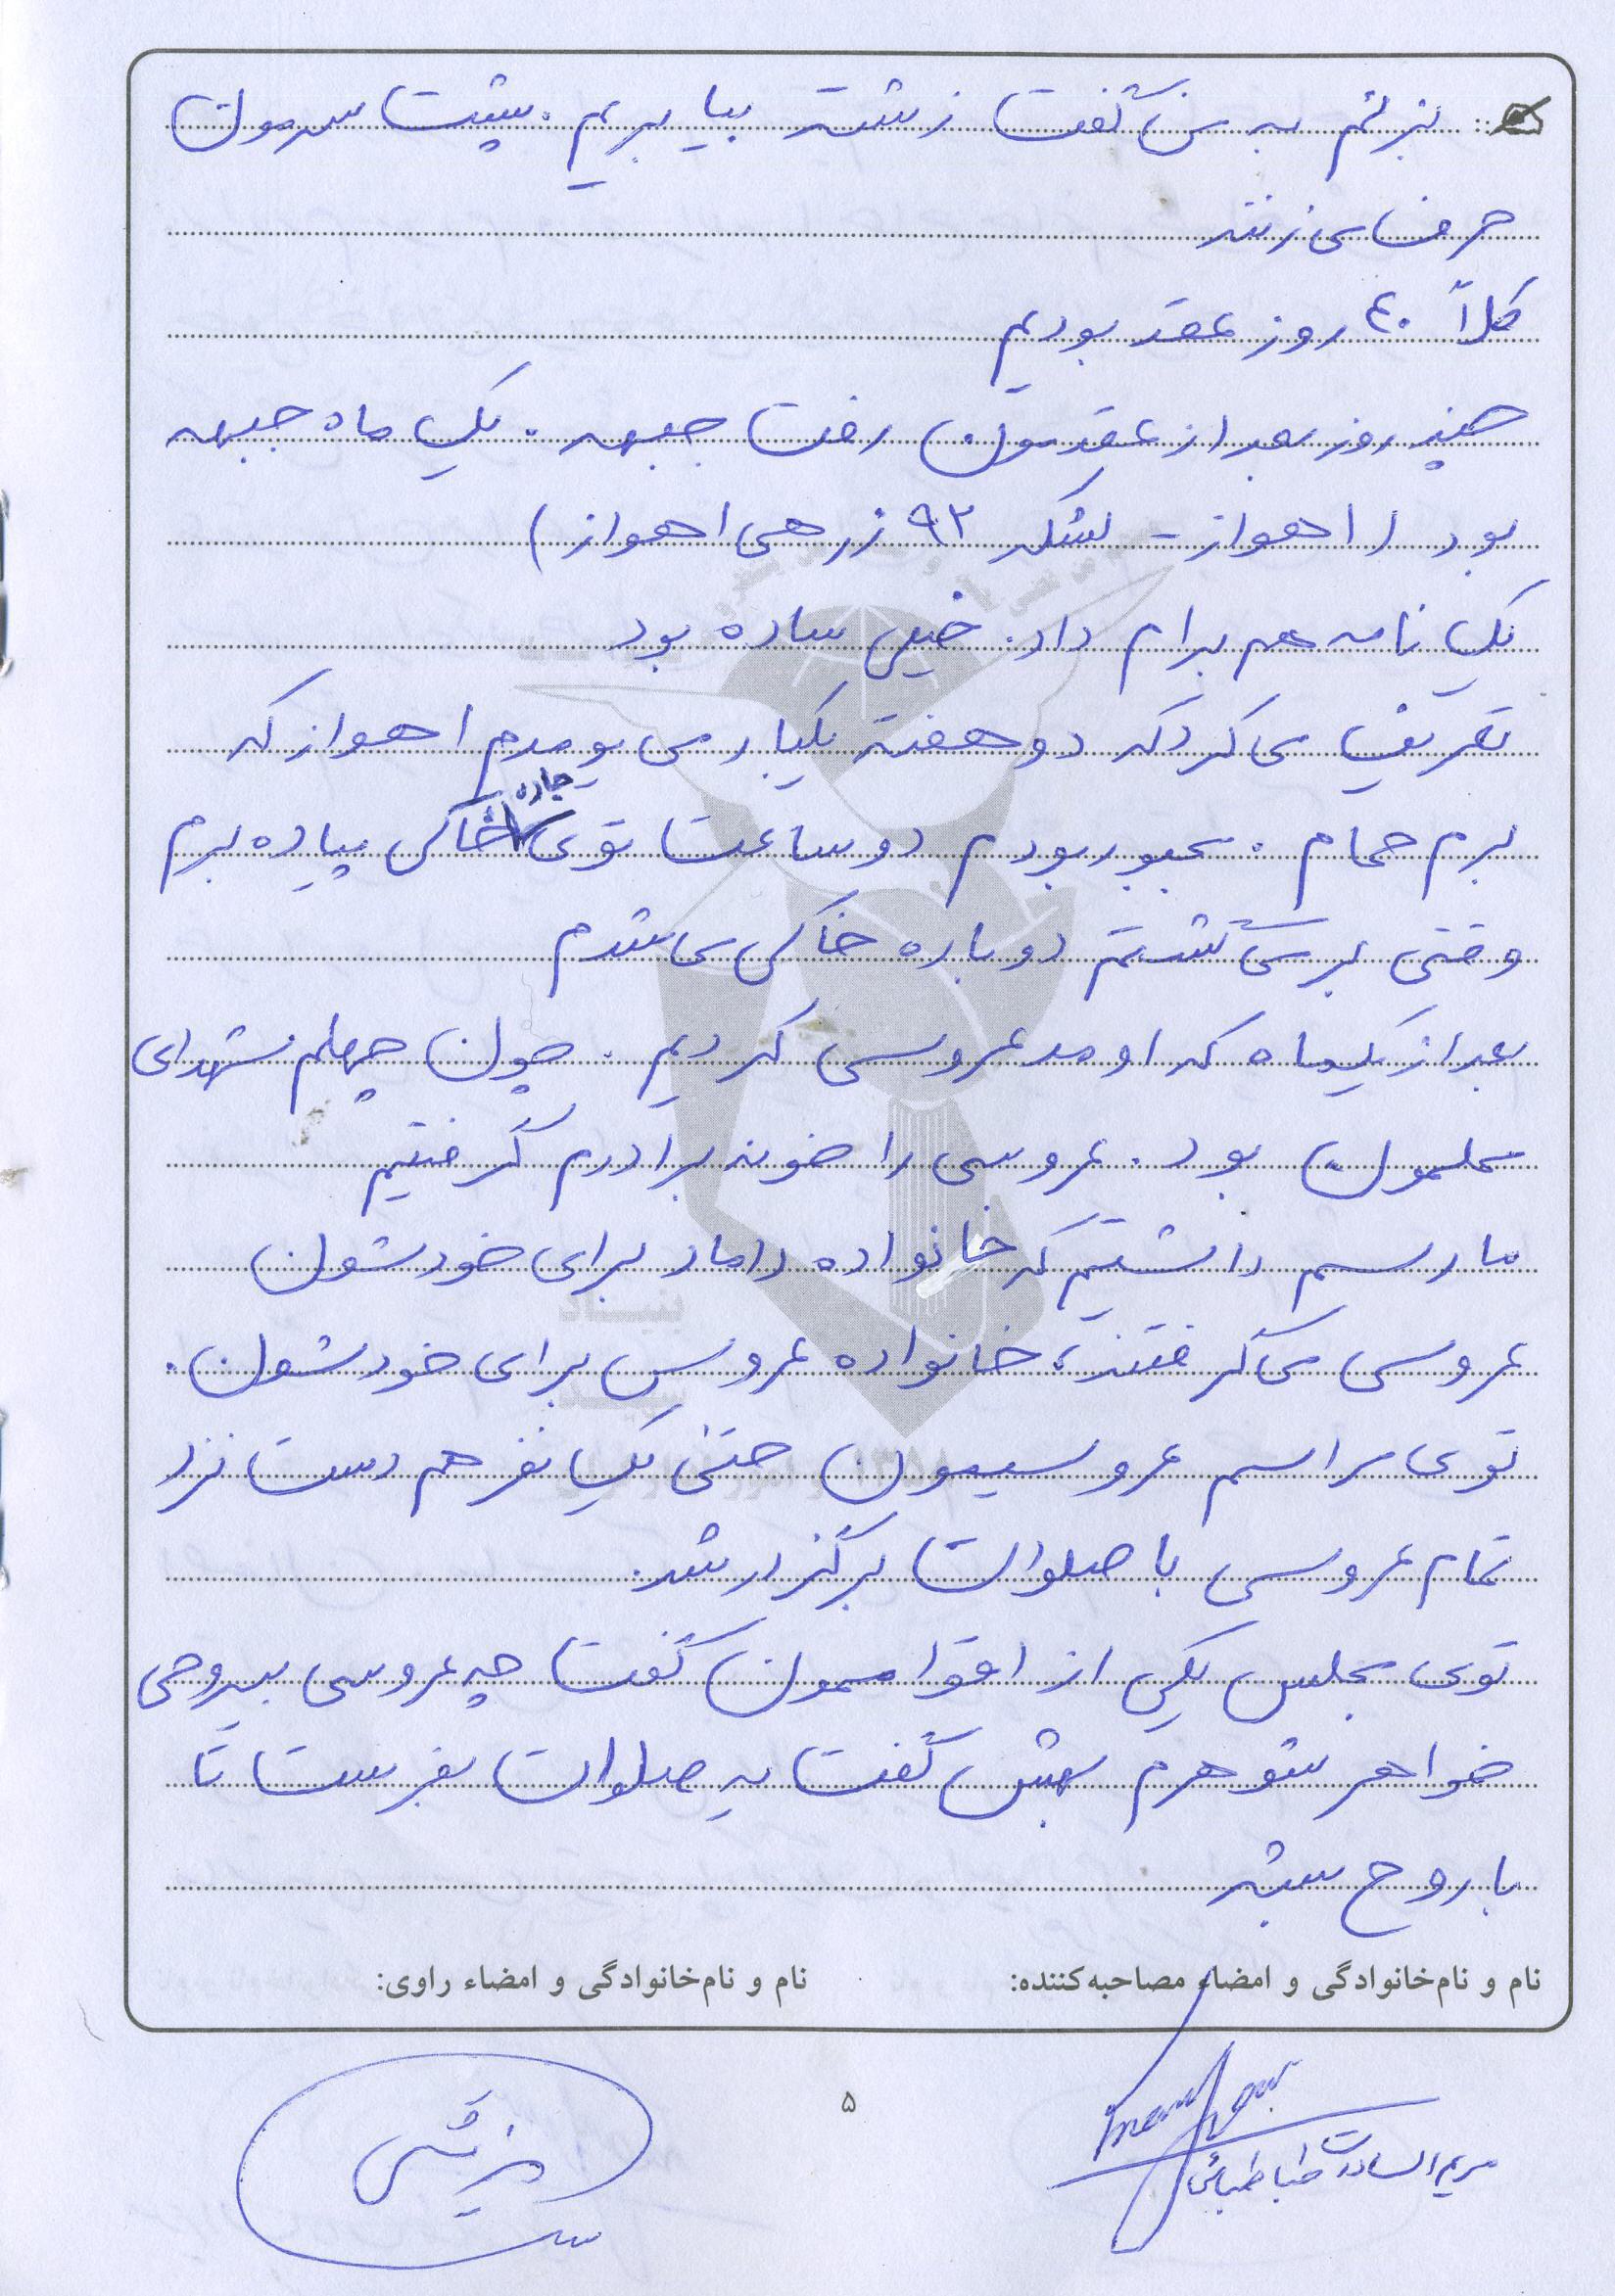 بزنم به من گفت زشته بیا بریم. پشت سرمون
حرف می زنند
کلاً ۴۰ روز عقد بودیم
چند روز بعد از عقدمون رفت جبهه. یک ماه جبهه
بود (اهواز - لشکر ۹۲ زرهی اهواز)
یک نامه هم برام داد. خیلی ساده بود
تعریف می کرد که دو هفته یکبار می یومدم اهواز که
برم حمام. مجبور بودم دو ساعت توی جاده خاکی پیاده برم
وقتی برمی گشتم دوباره خاکی می شدم
بعد از یکماه که اومد عروسی کردیم. چون چهلم شهدای
محلمون بود. عروسی را خونه برادرم گرفتیم
ما رسم داشتیم که خانواده داماد برای خودشون
عروسی می گرفتند، خانواده عروس برای خودشون.
توی مراسم عروسیمون حتی یک نفر هم دست نزد
تمام عروسی با صلوات برگزار شد.
توی مجلس یکی از اقواممون گفت چه عروسی بیروحی
خواهر شوهرم بهش گفت یه صلوات بفرست تا
با روح بشه
نام و نام‌خانوادگی و امضاء مصاحبه‌کننده: نام و نام‌خانوادگی و امضاء راوی:
۵
مریم السادات طباطبائی